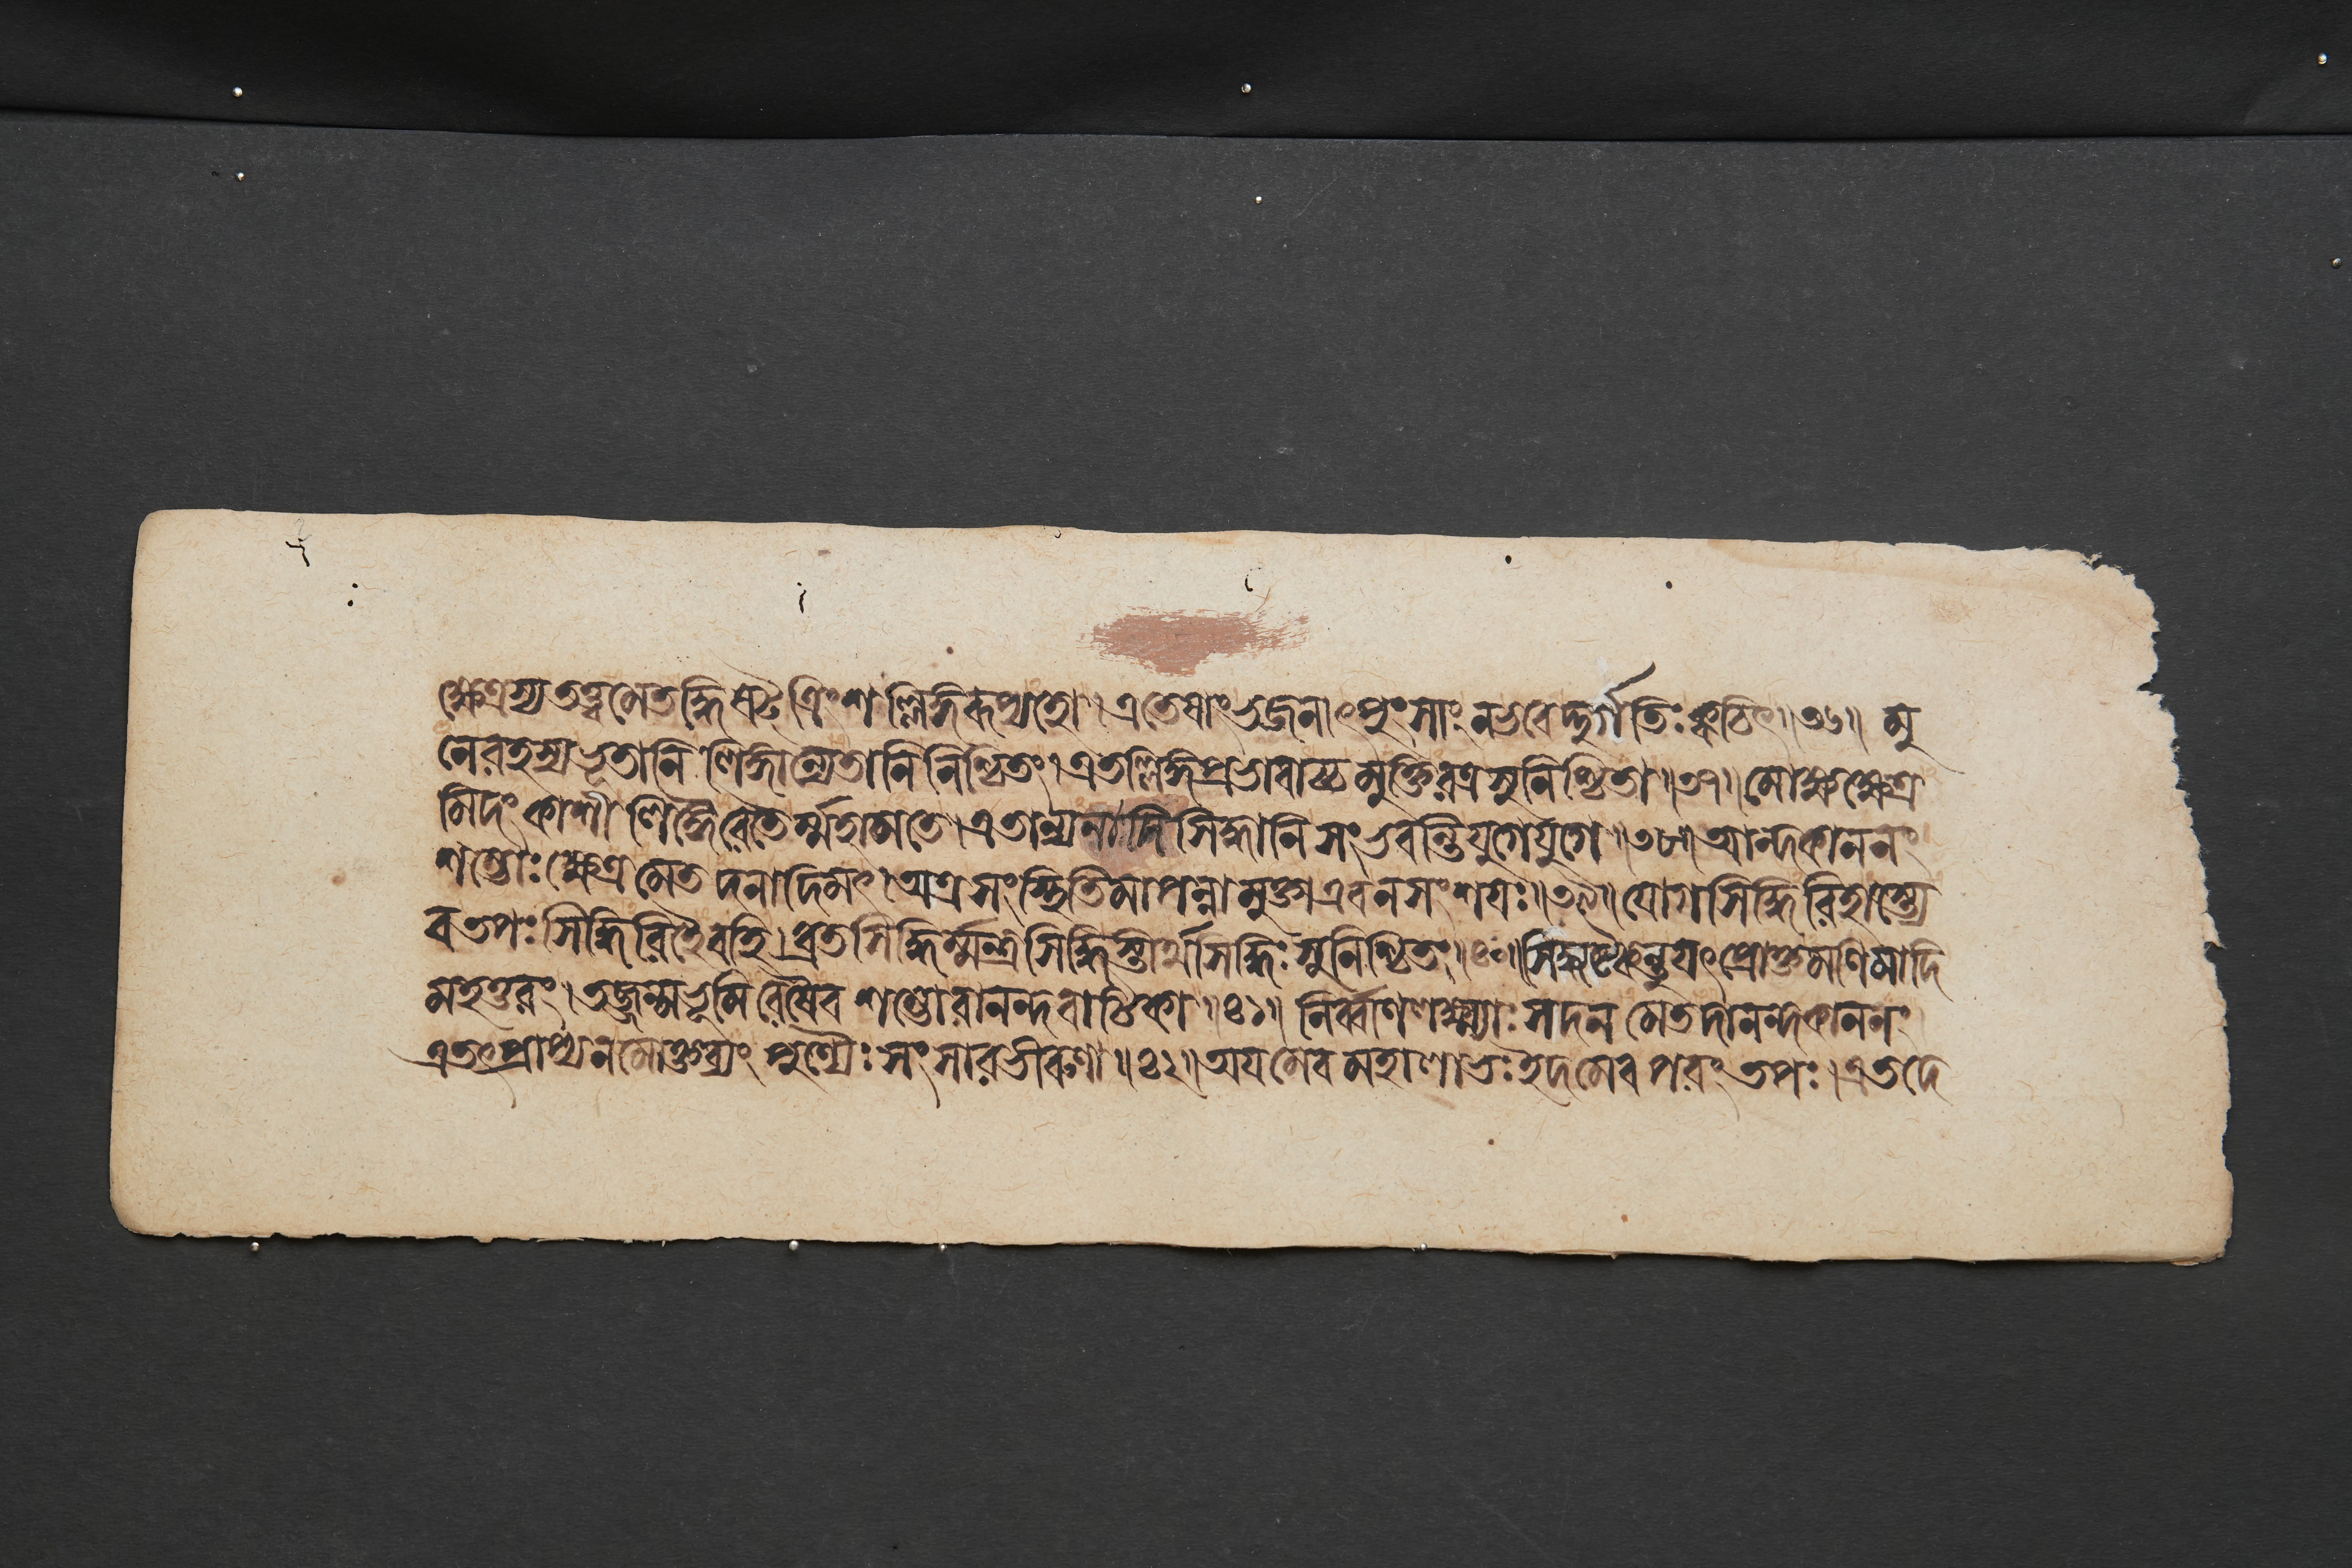 ক্ষেত্রস্য তত্ত্বমেতদ্ধি ষট্ত্রিংশল্লিঙ্গিরূপ্যহো। এতেষাং ভজনাৎ পুংসাং ন ভবেদ্দুর্গতিঃ ক্বচিৎ॥৩৬॥ মু
নেরহস্যভূতানি লিঙ্গান্যেতানি নিশ্চিতং। এতল্লিঙ্গপ্রভাবাচ্চ মুক্তিরত্র সুনিশ্চিতা॥৩৭॥ মোক্ষক্ষেত্র
মিদং কাশী লিঙ্গৈরেতৈর্ম্মহামতে। এতান্যনাদিসিদ্ধানি সংভবন্তি যুগে যুগে॥৩৮॥ আন্দকাননং
শম্ভোঃ ক্ষেত্রমেতদনাদিমৎ। অত্র সংস্থিতিমাপন্না মুক্তা এব ন সংশযঃ॥৩৯॥ যোগসিদ্ধিরিহাস্ত্যে
ব তপঃসিদ্ধিরিহৈবহি। ব্রতসিদ্ধির্ম্মন্ত্রসিদ্ধিস্তীর্থসিদ্ধিঃ সুনিশ্চিতং॥৪০॥ সিদ্ধ্যষ্টকন্তু যৎ প্রোক্তমণিমাদি
মহত্তরং। তজ্জন্মভূমিরেষৈব শম্ভোরানন্দবাটিকা॥৪১॥ নির্ব্বাণলক্ষ্ম্যাঃ সদনমেতদানন্দকাননং
এতৎপ্রাপ্য ন মোক্তব্যং পুণ্যৈঃ সংসারভীরুণা॥৪২॥ অযমেব মহালাভঃ ইদমেব পরং তপঃ। এতদে